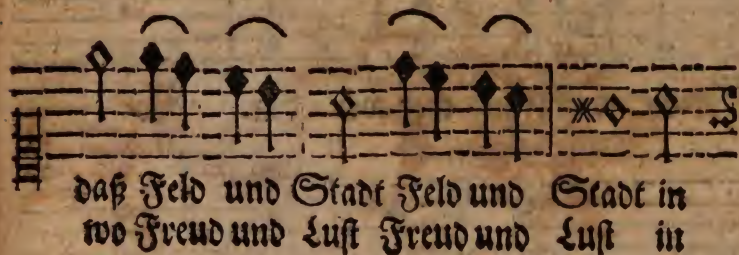 daß Feld und Stadt Feld und Stadt in
wo Freud und Lust Freud und Lust in